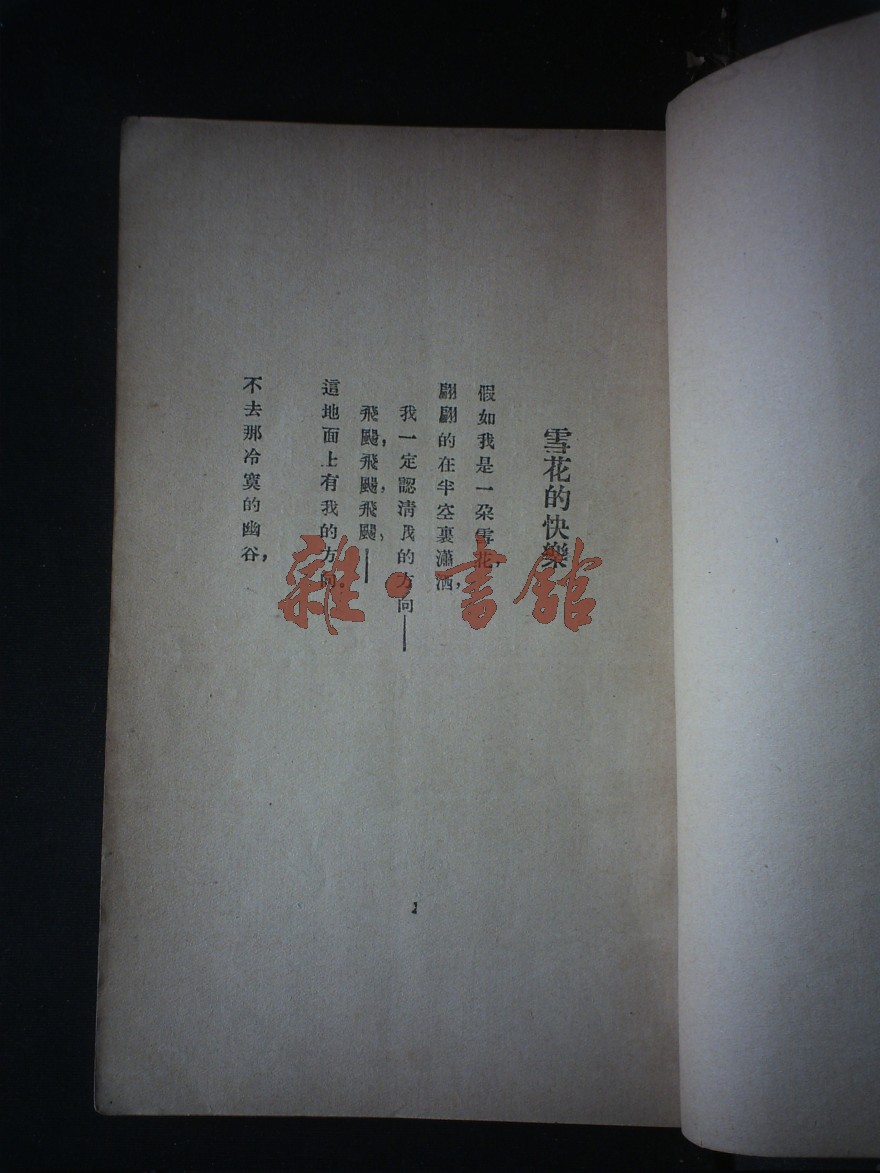 雪花的快樂
假如我是一朶雪花，
翩翩的在半空裏瀟洒，
我一定認清我的方向——
飛颺，飛颺，飛颺，——
這地面上有我的方向。
不去那冷寞的幽谷，
雜·書館